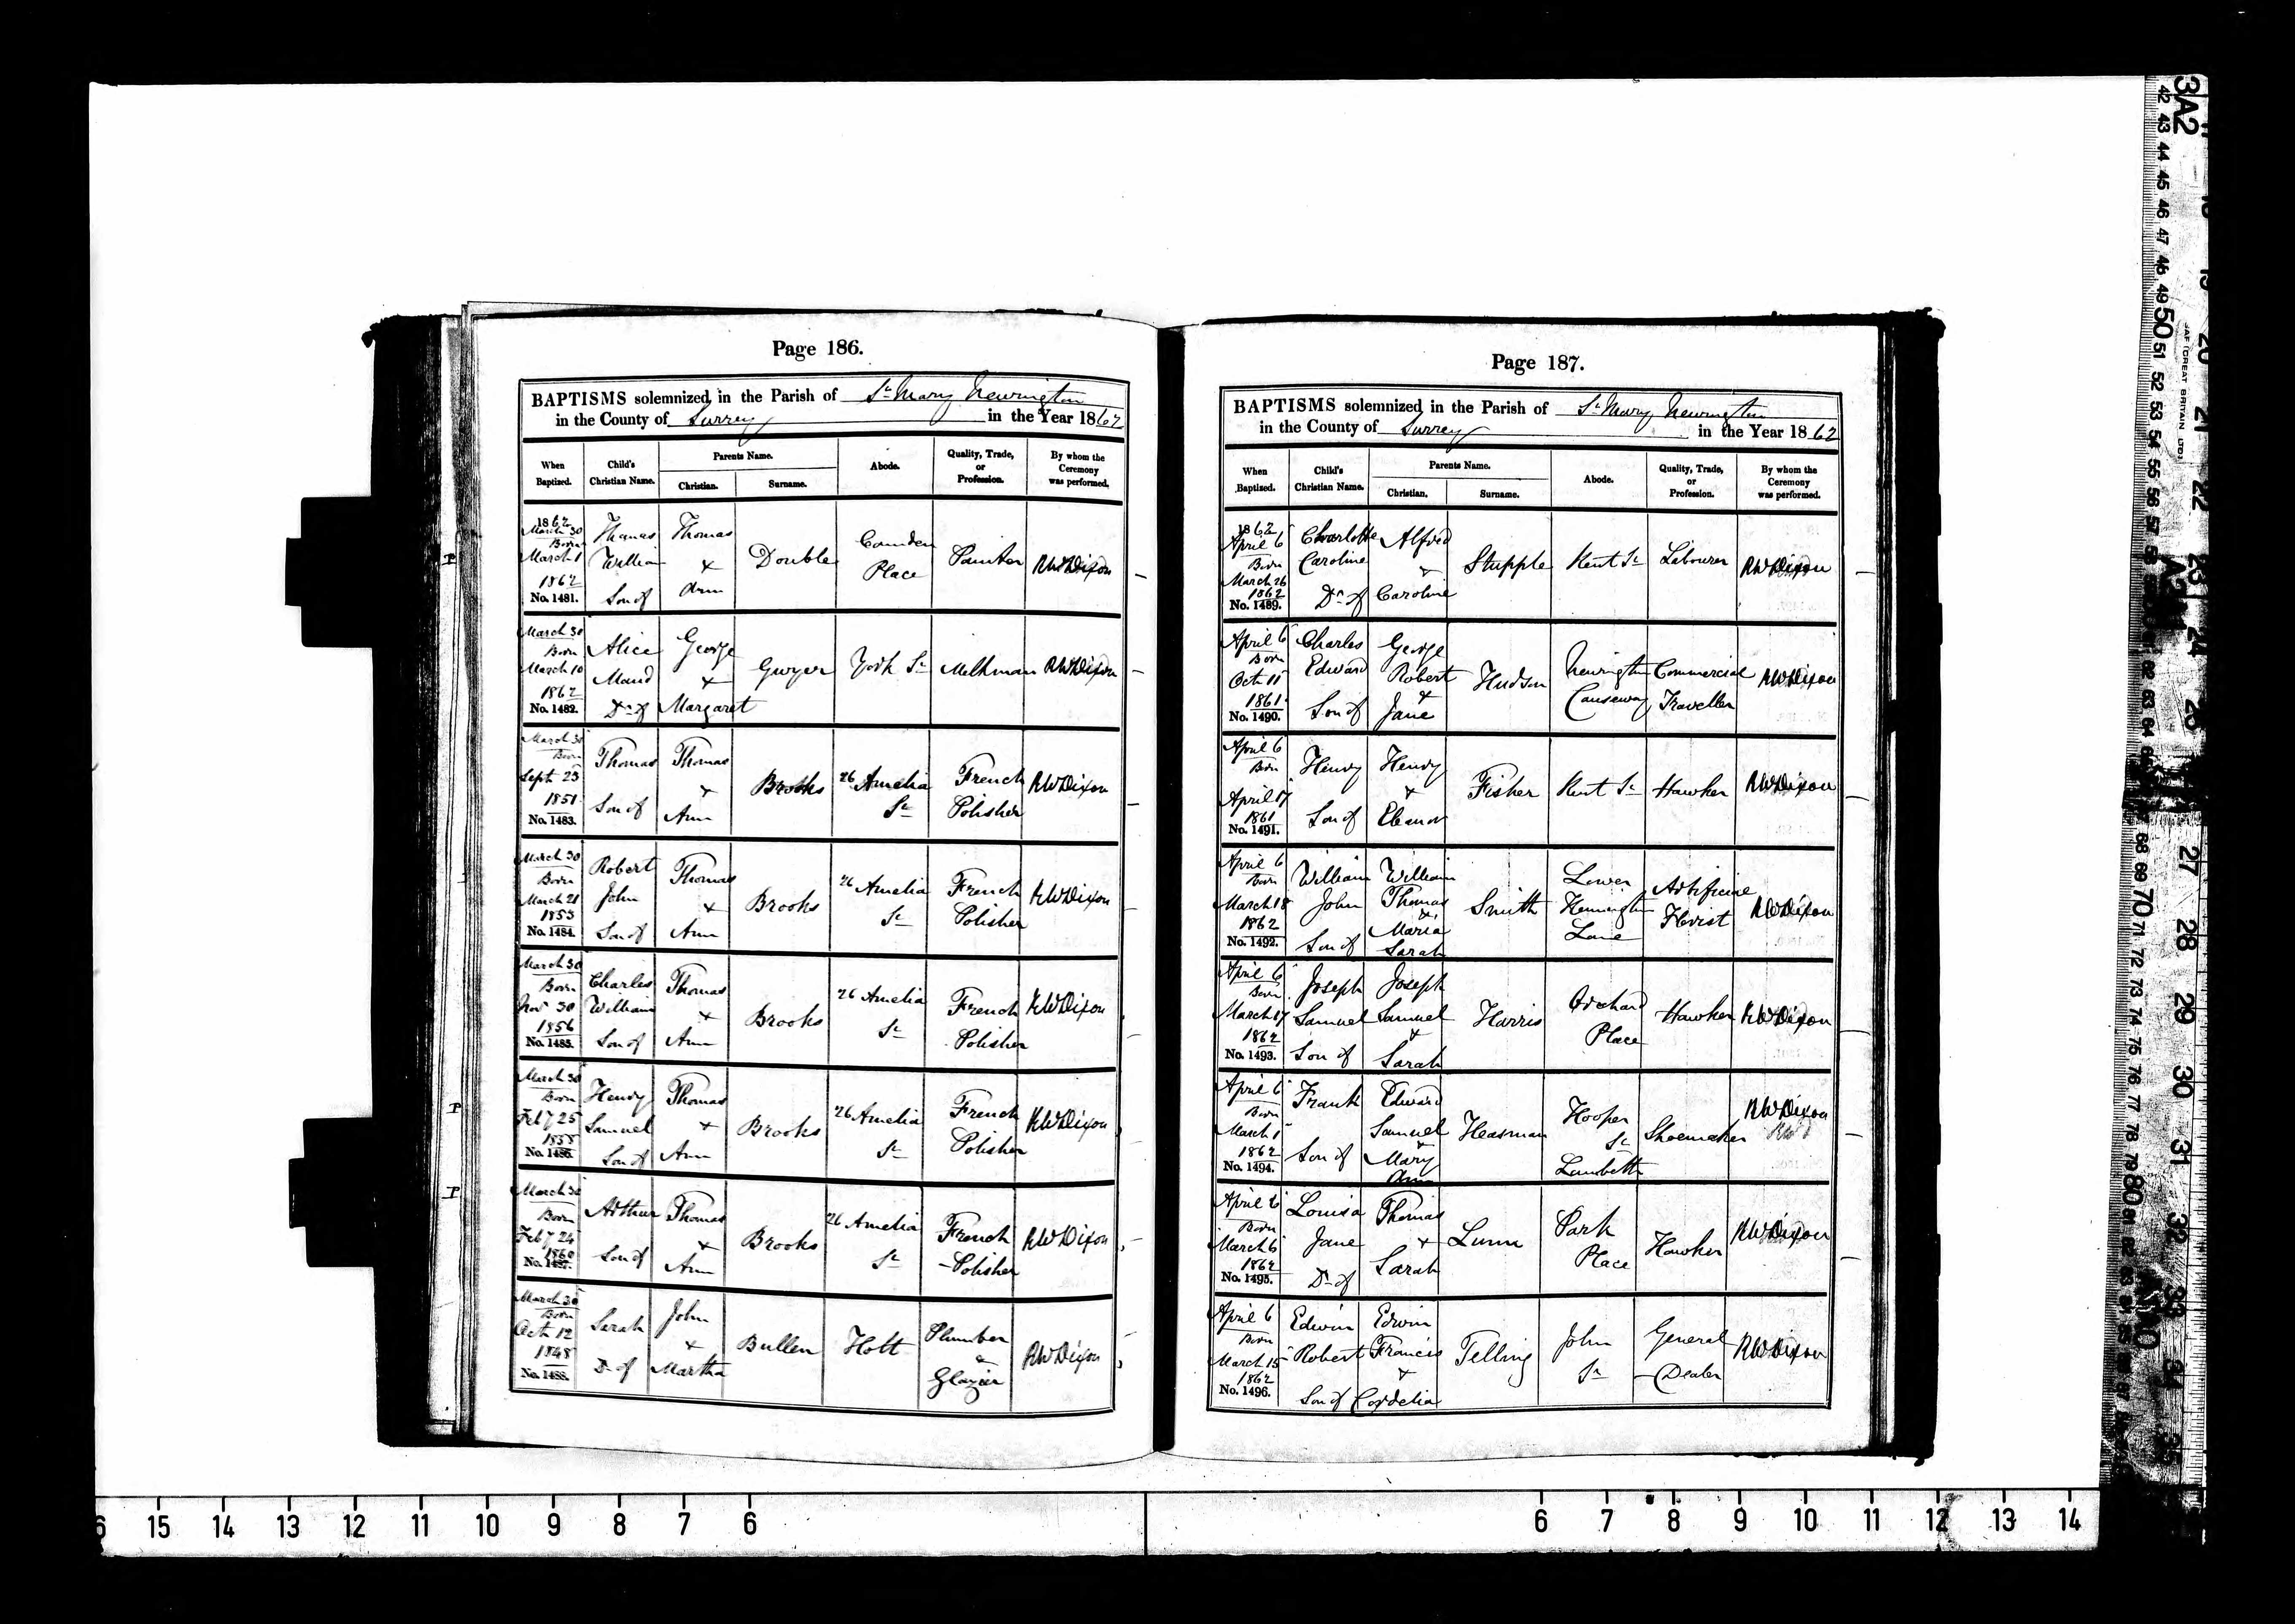 Page 186.
BAPTISMS solemnized in the Parish of St Mary Newington
in the County of Surrey in the Year 1862
When Baptized. Child's Christian Name. Parents Name. Christian. Surname. Abode. Quality, Trade, or Profession. By whom the Ceremony was performed.
1862 March 30 Born March 1 1862 No. 1481. Thomas William Son of Thomas + Ann Double Camden Place Painter RWDixon
March 30 Born March 10 1862 No. 1482. Alice Maud Dr of George + Margaret Gwyer York St Melkman RWDixon
March 30 Born Sept 23 1851 No. 1483. Thomas Son of Thomas + Ann Brooks 26 Amelia St French Polisher RWDixon
March 30 Born March 21 1853 No. 1484. Robert John Son of Thomas + Ann Brooks 26 Amelia St French Polisher RWDixon
March 30 Born Nov 30 1856 No. 1485. Charles William Son of Thomas + Ann Brooks 26 Amelia St French Polisher RWDixon
March 30 Born Feby 25 1858 No. 1486. Henry Samuel Son of Thomas + Ann Brooks 26 Amelia St French Polisher RWDixon
March 30 Born Feby 24 1860 No. 1487. Arthur Son of Thomas + Ann Brooks 26 Amelia St French Polisher RWDixon
March 30 Born Oct 12 1848 No. 1488. Sarah D of John + Martha Bullen Holt Plumber & Glazier RWDixon
Page 187.
BAPTISMS solemnized in the Parish of St Mary Newington
in the County of Surrey in the Year 1862
When Baptized. Child's Christian Name. Parents Name. Christian. Surname. Abode. Quality, Trade, or Profession. By whom the Ceremony was performed.
1862 April 6 Born March 26 1862 No. 1489. Charlotte Caroline Dr of Alfred + Caroline Stupple Kent St Labourer RWDixon
April 6 Born Oct 11 1861 No. 1490. Charles Edward Son of George Robert + Jane Hudson Newington Causeway Commercial Traveller RWDixon
April 6 Born April 17 1861 No. 1491. Henry Son of Henry + Eleanor Fisher Kent St Hawker RWDixon
April 6 Born March 18 1862 No. 1492. William John Son of William Thomas & Maria Sarah Smith Lower Kennington Lane Artificial Florist RWDixon
April 6 Born March 17 1862 No. 1493. Joseph Samuel Son of Joseph Samuel + Sarah Harris Orchard Place Hawker RWDixon
April 6 Born March 1 1862 No. 1494. Frank Son of Edward Samuel & Mary Ann Heasman Hooper St Lambeth Shoemaker RWDixon
April 6 Born March 6 1862 No. 1495. Louisa Jane Dr of Thomas + Sarah Lunn Park Place Hawker RWDixon
April 6 Born March 15 1862 No. 1496. Edwin Robert Son of Edwin Francis + Cordelia Telling John St General Dealer RWDixon
15 14 13 12 11 10 9 8 7 6 6 7 8 9 10 11 12 13 14